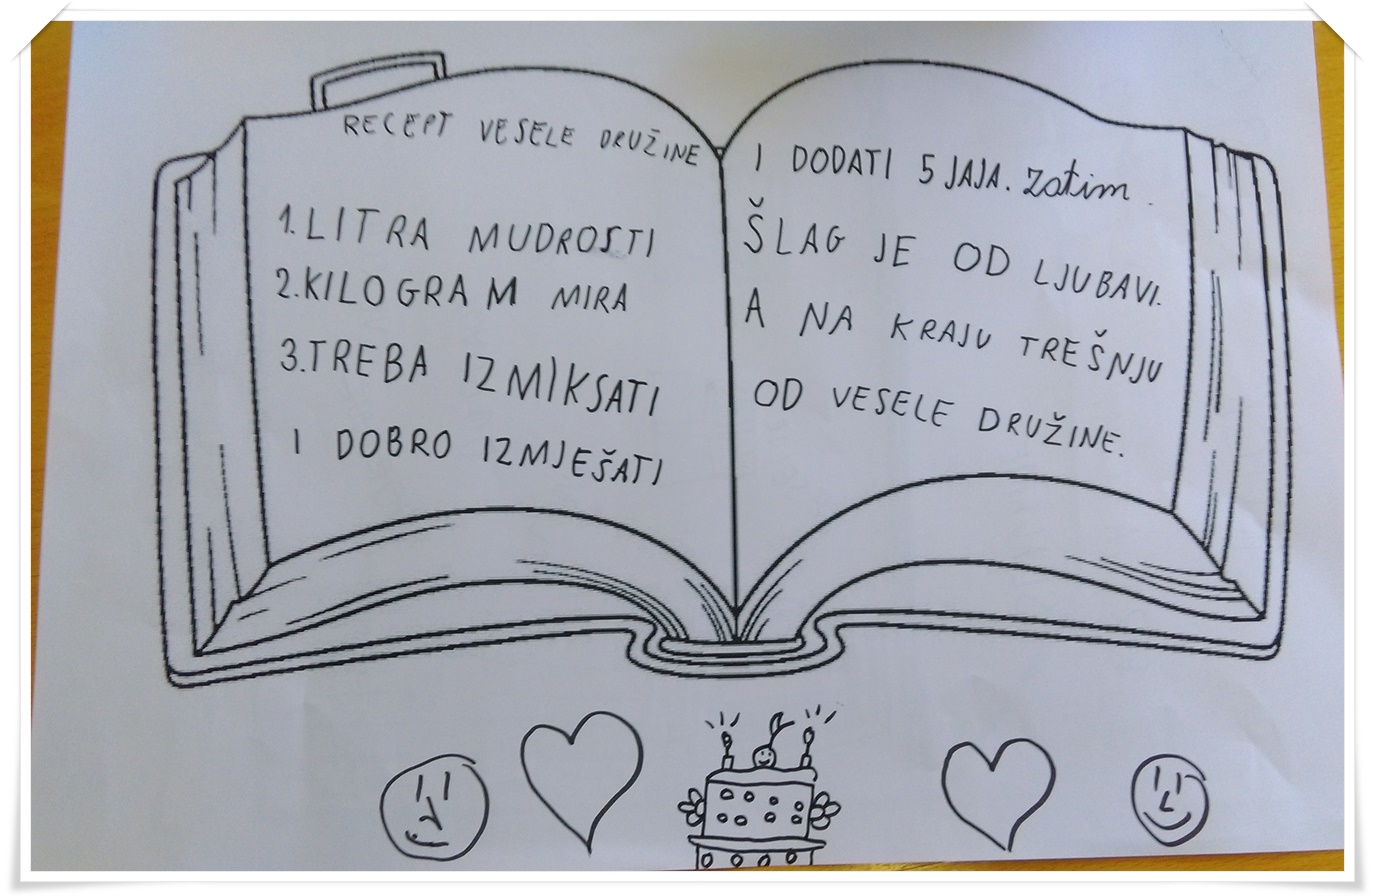 RECEPT VESELE DRUŽINE
1. LITRA MUDROSTI
2. KILOGRAM MIRA
3. TREBA IZMIKSATI
I DOBRO IZMJEŠATI
I DODATI 5 JAJA. Zatim
ŠLAG JE OD LJUBAVI.
A NA KRAJU TREŠNJU
OD VESELE DRUŽINE.